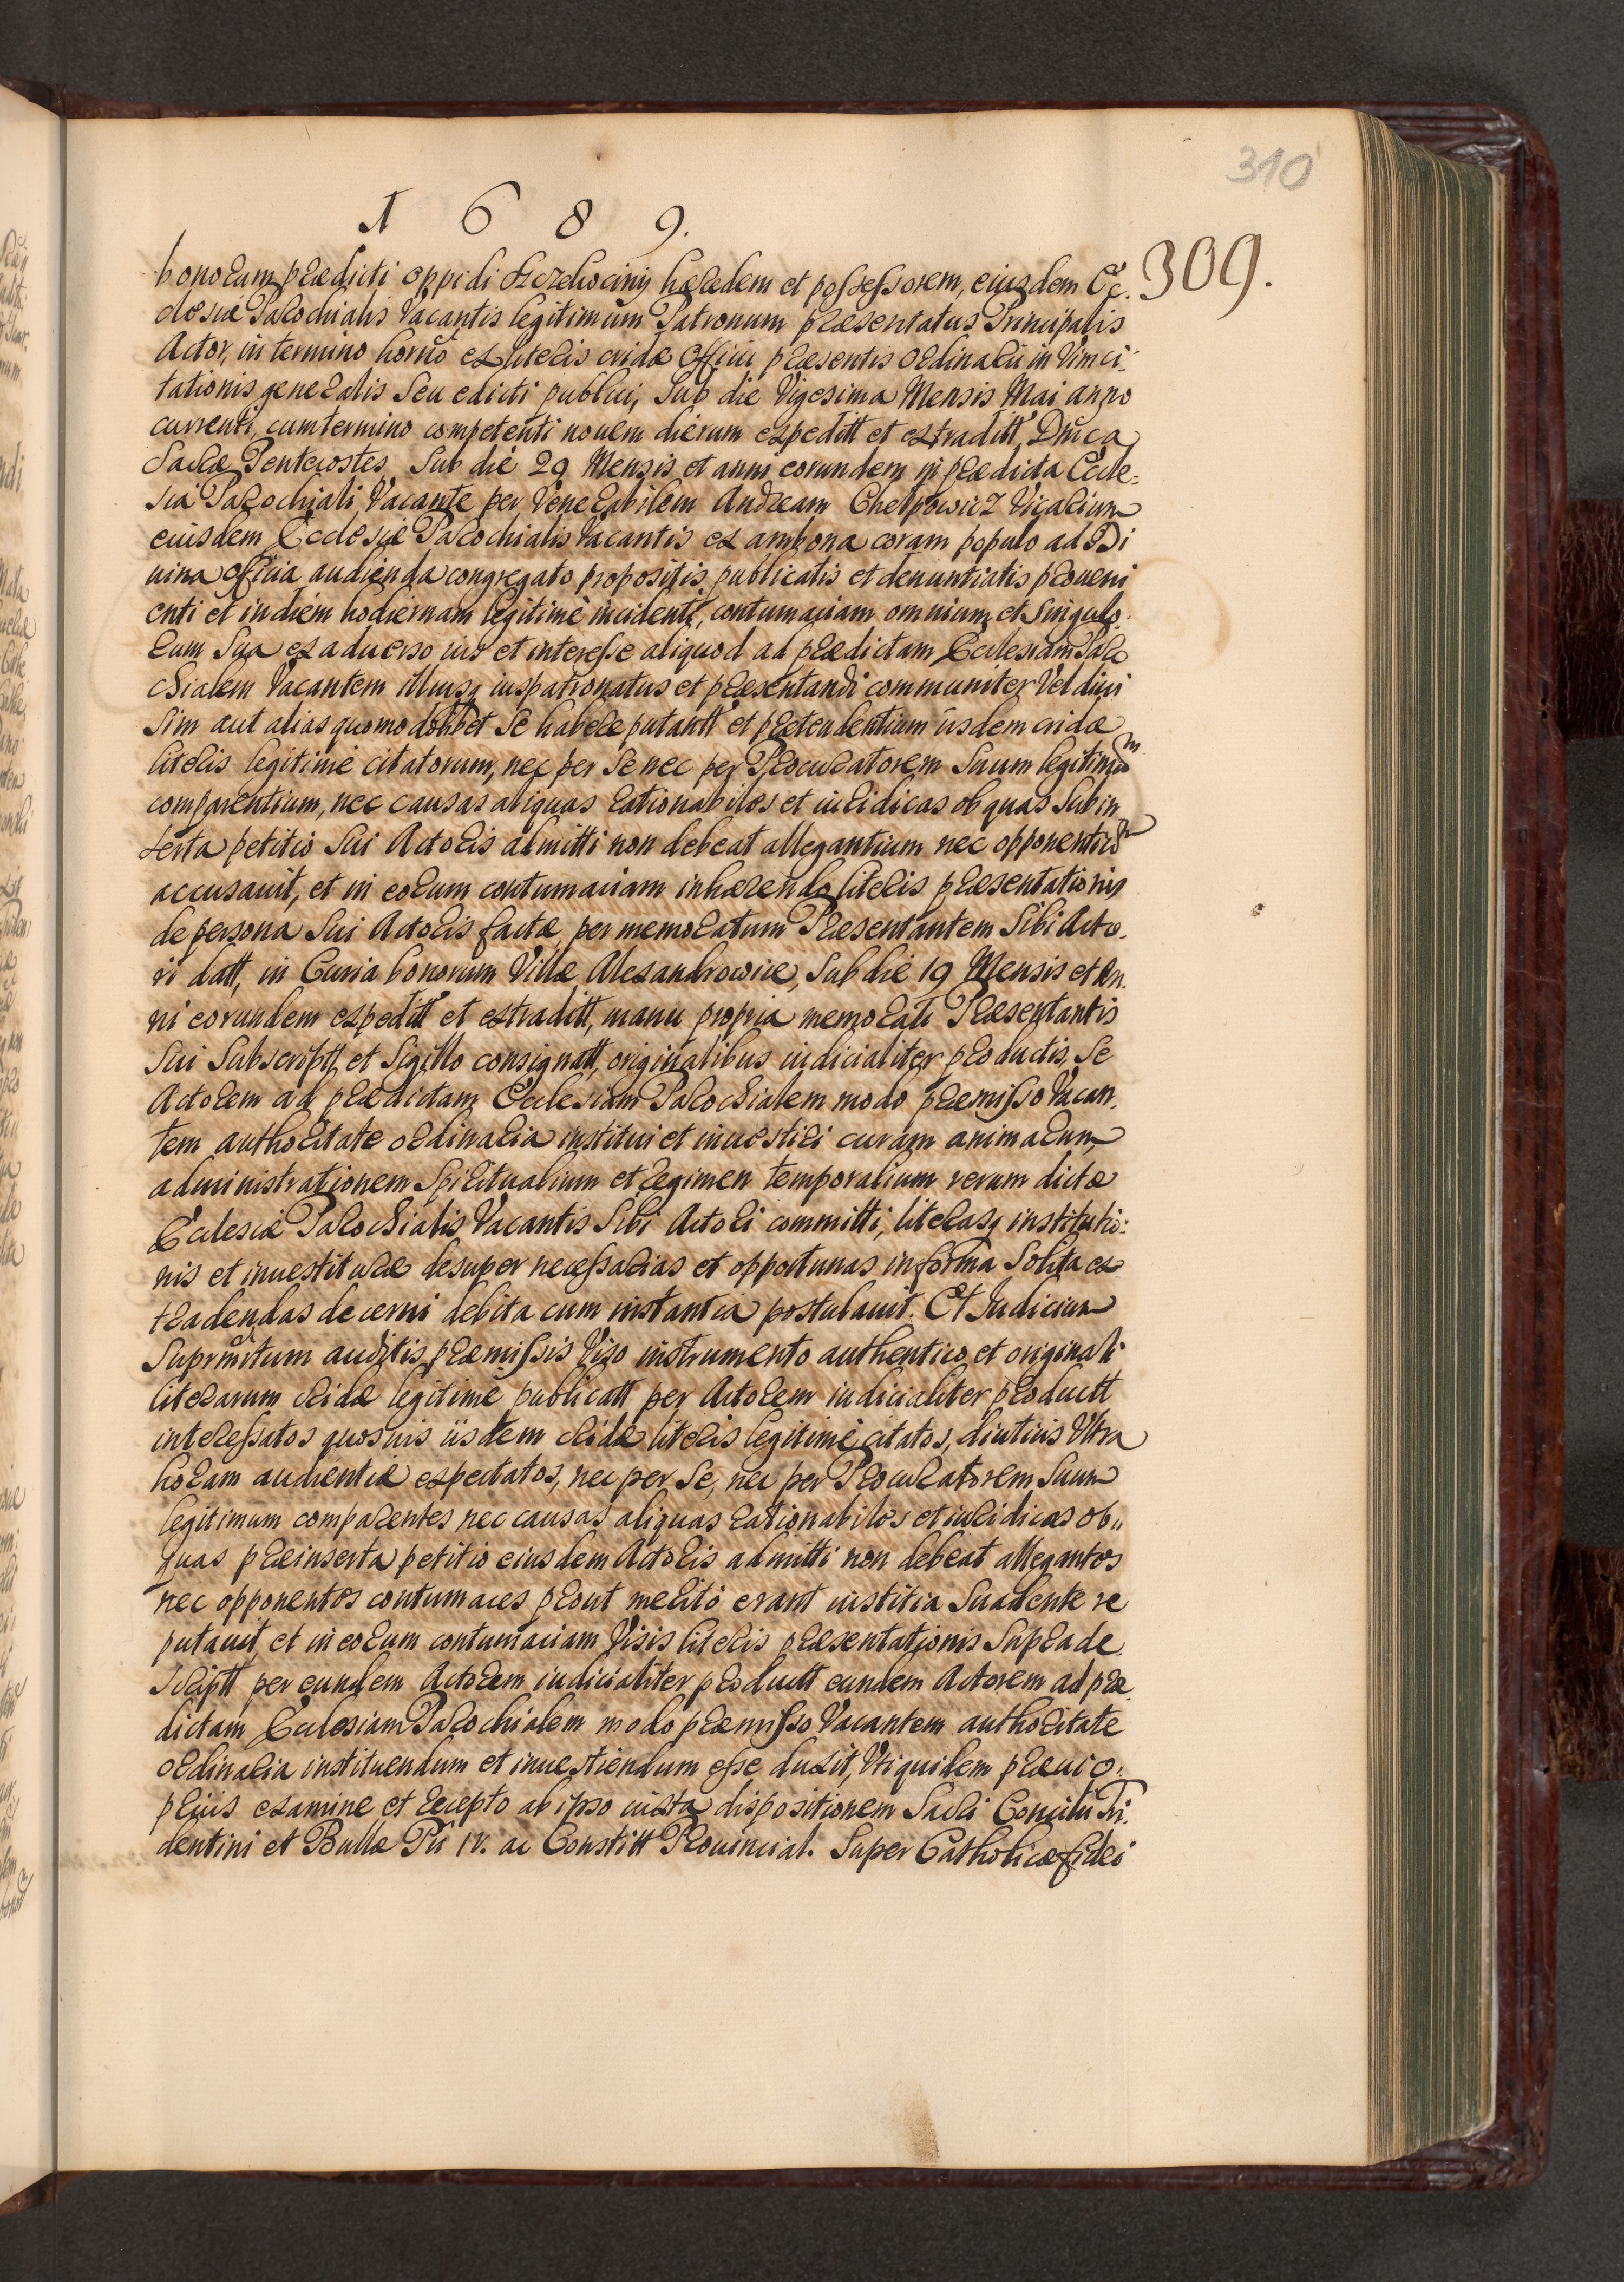 310
1 6 8 9.
309.
bonorum prædicti oppidi Szczekociny hæredem et possessorem, eiusdem Ec-
clesiæ Parochialis Vacantis legitimum Patronum præsentatus Principalis
Actor, in termino horno ex literis cridæ Officii præsentis ordinarii in vim ci-
tationis generalis seu edicti publici, sub die Vigesima Mensis Mai anno
currenti, cum termino competenti novem dierum expeditt et extraditt, Dnica
Sacræ Pentecostes sub die 29 Mensis et anni eorundem in prædicta Eccle-
sia Parochiali Vacante per Venerabilem Andream Chelpowicz Vicarium
eiusdem Ecclesiæ Parochialis Vacantis ex ambona coram populo ad Di
uina officia audienda congregato propositis publicatis et denuntiatis proueni
enti et in diem hodiernam legitime incidenti, contumaciam omnium et singulo-
rum sua ex aduerso ius et interesse aliquod ad prædictam Ecclesiam Paro
chialem Vacantem illiusq iuspatronatus et præsentandi communiter Vel diui
sim aut alias quomodolibet se habere putantt et prætendentium iisdem cridæ
literis legitime citatorum, nec per se nec per Procuratorem suum legitimum
comparentium, nec causas aliquas rationabiles et iuridicas ob quas sub in
serta petitio sui Actoris admitti non debeat allegantium nec opponentium
accusauit, et in eorum contumaciam inhærendo literis præsentationis
de persona sui Actoris factæ, per memoratum Præsentantem sibi Acto-
ri datt, in Curia bonorum Villæ Alexandrowice, sub die 19 Mensis et an-
ni eorundem expeditt et extraditt, manu propria memorati Præsentantis
sui subscriptt et sigillo consignatt, originalibus iudicialiter productis, se
Actorem ad prædictam Ecclesiam Parochialem modo præmisso Vacan-
tem authoritate ordinaria institui et inuestiri curam animarum
administrationem spiritualium et regimen temporalium rerum dictæ
Ecclesiæ Parochialis Vacantis sibi Actori committi, literasq institutio-
nis et inuestituræ desuper necessarias et opportunas in forma solita ex
tradendas decerni debita cum instantia postulauit. Et Iudicium
suprmttum auditis præmissis Viso instrumento authentico et originali
literarum cridæ legitime publicatt per Actorem iudicialiter productt
interessatos quosuis iisdem cridæ literis legitime citatos, diutius Vltra
horam audientiæ expectatos, nec per se, nec per Procuratorem suum
legitimum comparentes nec causas aliquas rationabiles et iuridicas ob„
quas præinserta petitio eiusdem Actoris admitti non debeat allegantes
nec opponentes contumaces prout merito erant iustitia suadente re
putauit, et in eorum contumaciam Visis literis præsentationis suprade
scriptt per eundem Actorem iudicialiter productt eundem Actorem ad præ
dictam Ecclesiam Parochialem modo præmisso Vacantem authoritate
ordinaria instituendum et inuestiendum esse duxit, Vti quidem præuio
prius examine et recepto ab ipso iuxta dispositionem Sacri Concilii Tri-
dentini et Bullæ Pii IV. ac Constitt Prouincial. super Catholicæ fidei